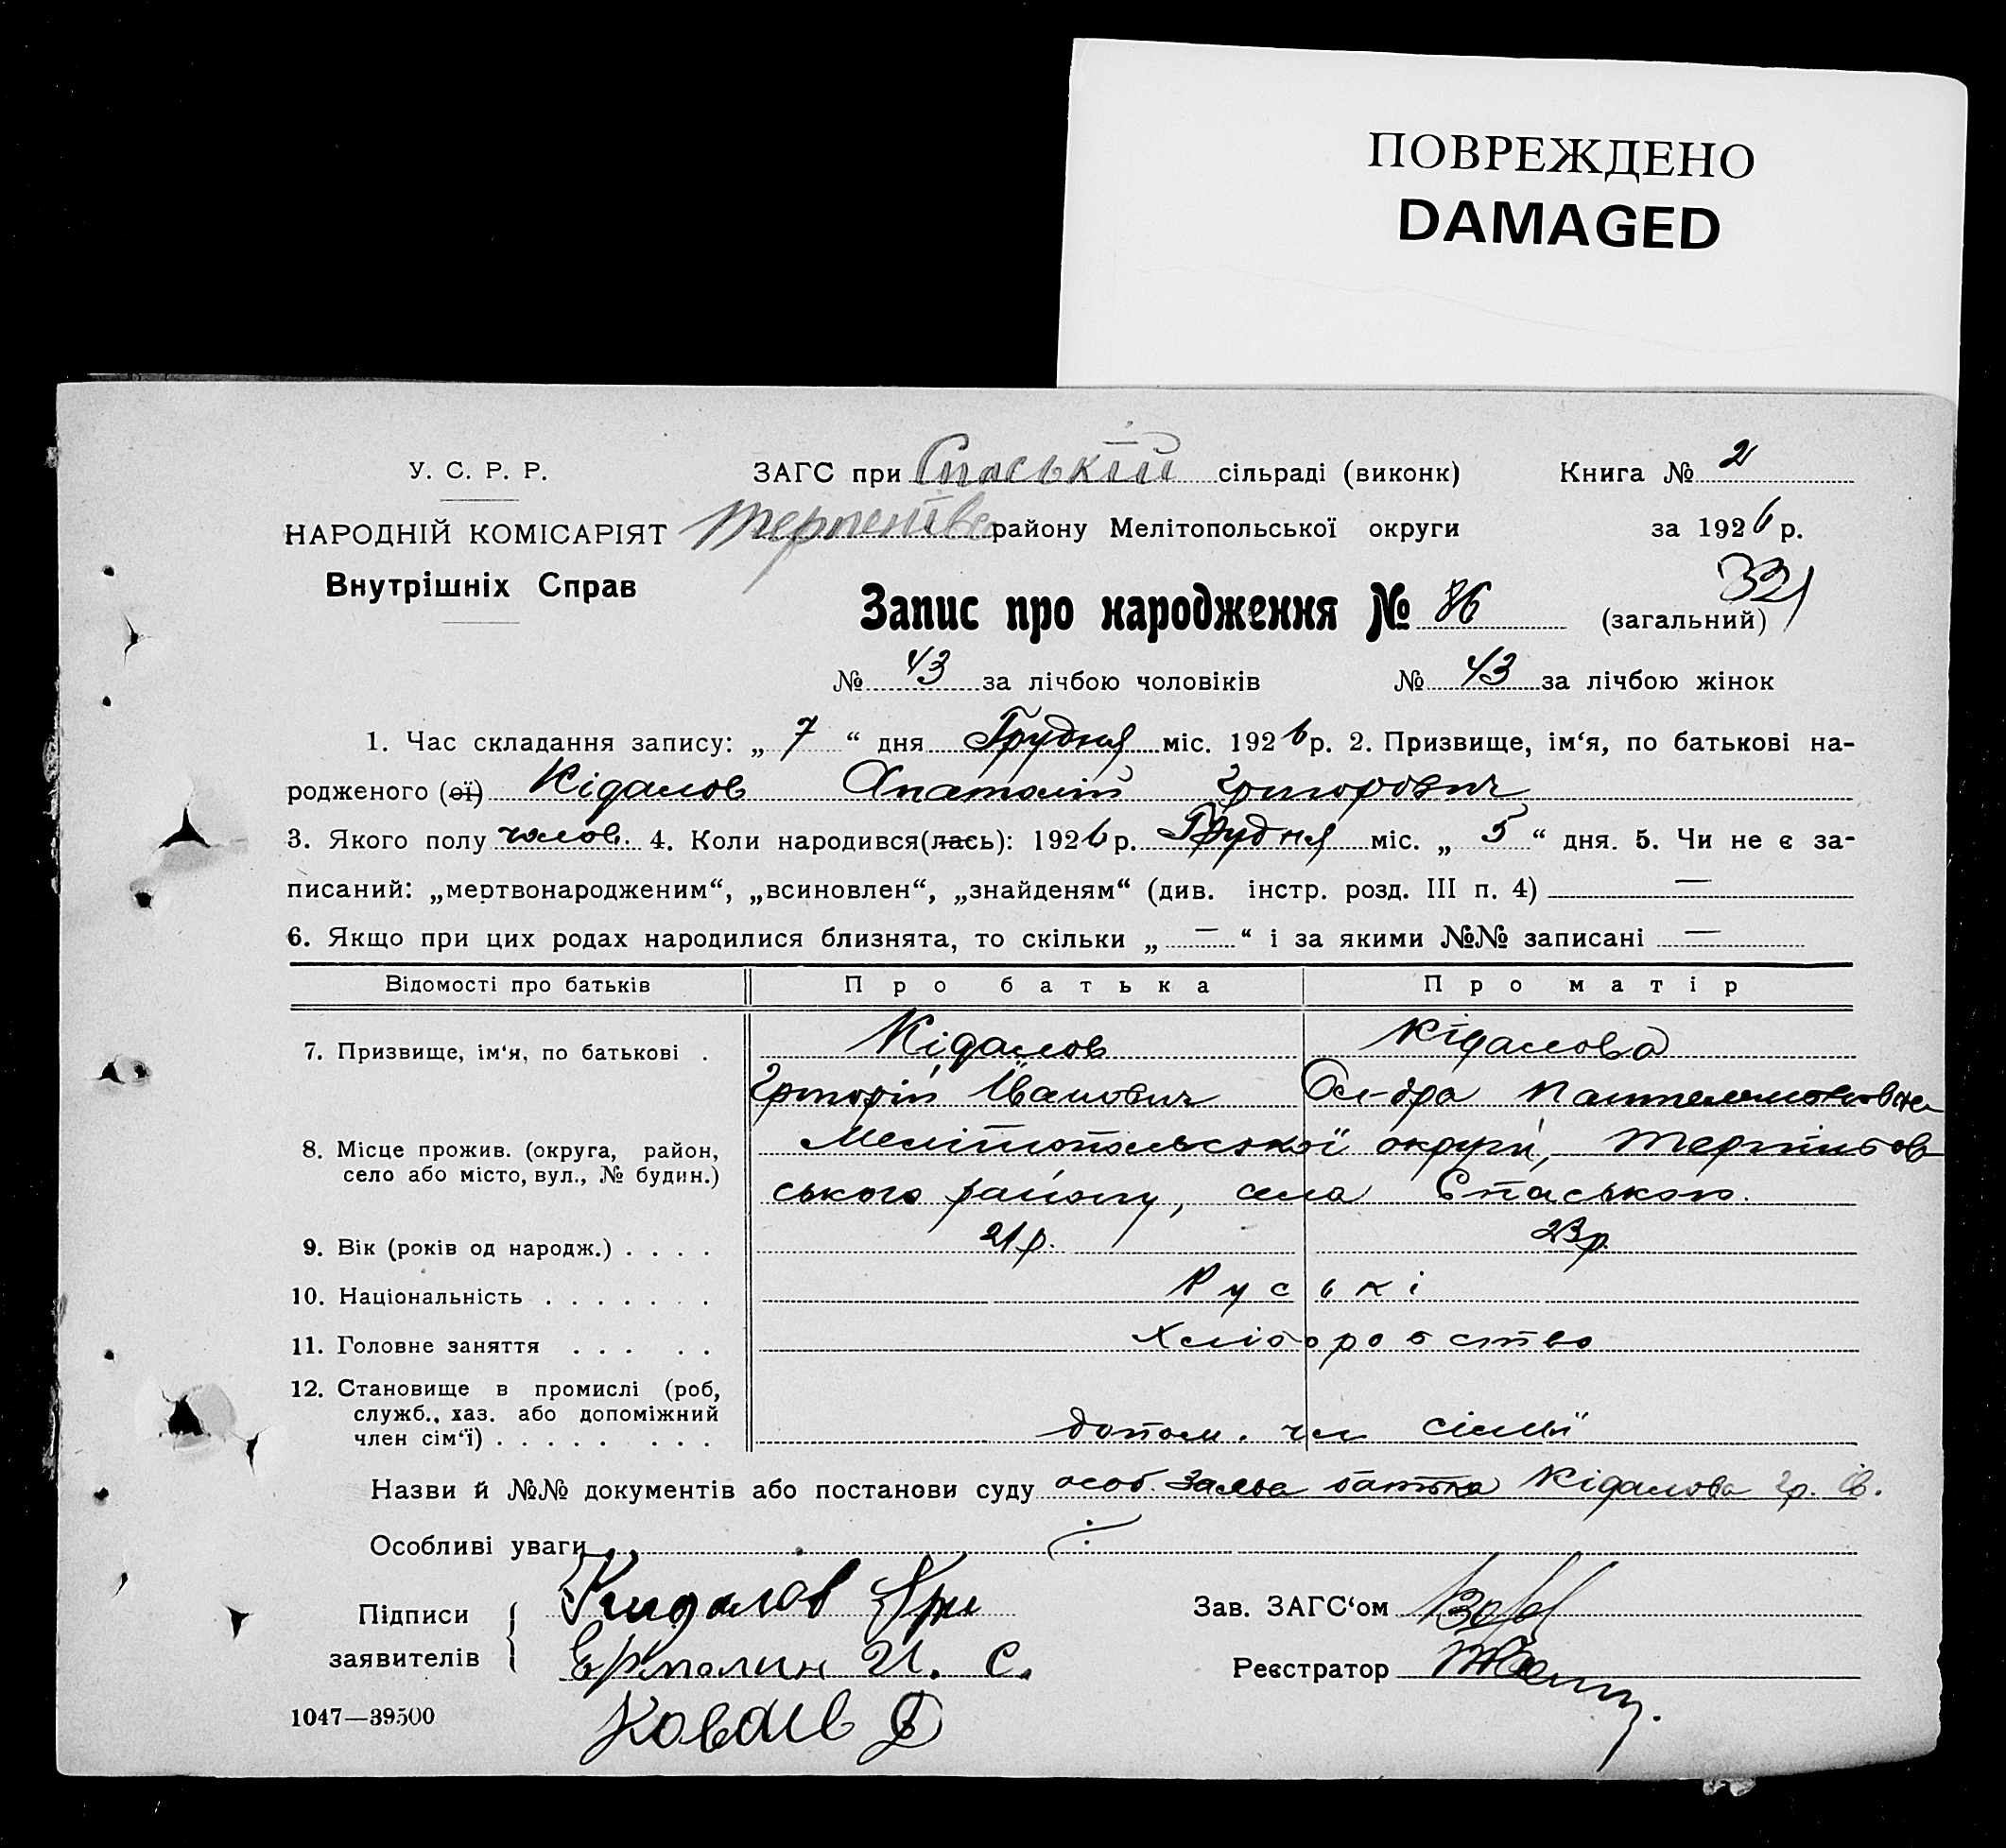 ПОВРЕЖДЕНО
DAMAGED
У. С. Р. Р.
ЗАГС при Спаській сільраді (виконк)
Книга № 2
НАРОДНІЙ КОМІСАРІЯТ
району Мелітопольської округи
за 1926 р.
Внутрішніх Справ
321
Запис про народження № 86 (загальний)
№ 43 за лічбою чоловіків № 43 за лічбою жінок
1. Час складання запису: „ 7 “ дня Грудня міс. 1926 р. 2. Призвище, ім‘я, по батькові на-
родженого (ої) Кідалов Анатолій Григорович
3. Якого полу чолов. 4. Коли народився(лась): 1926 р. Грудня міс. „ 5 “ дня. 5. Чи не є за-
писаний: „мертвонародженим“, „всиновлен“, „знайденям“ (див. інстр. розд. III п. 4) —
6. Якщо при цих родах народилися близнята, то скільки „ — “ і за якими №№ записані —
Відомості про батьків Про батька Про матір
7. Призвище, ім‘я, по батькові . Кідалов Кідалова
Григорій Іванович Пантелемоновна
8. Місце прожив. (округа, район, Мелітопольської округи, Терпіньєв
село або місто, вул., № будин.) ського району, села Спаського.
9. Вік (років од народж.) . . . . 21 р. 23 р.
10. Національність . . . . . . . Руські
11. Головне заняття . . . . . Хліборобство
12. Становище в промислі (роб,
служб., хаз. або допоміжний
член сім‘ї) . . . . . . . . допом. чл сімьї
Назви й №№ документів або постанови суду особ. заява батька Кідалова Гр. Ів.
Особливі уваги
Підписи
заявителів
Кидалов Гри
Ермолин И. С.
Зав. ЗАГС‘ом
Реєстратор
1047—39500